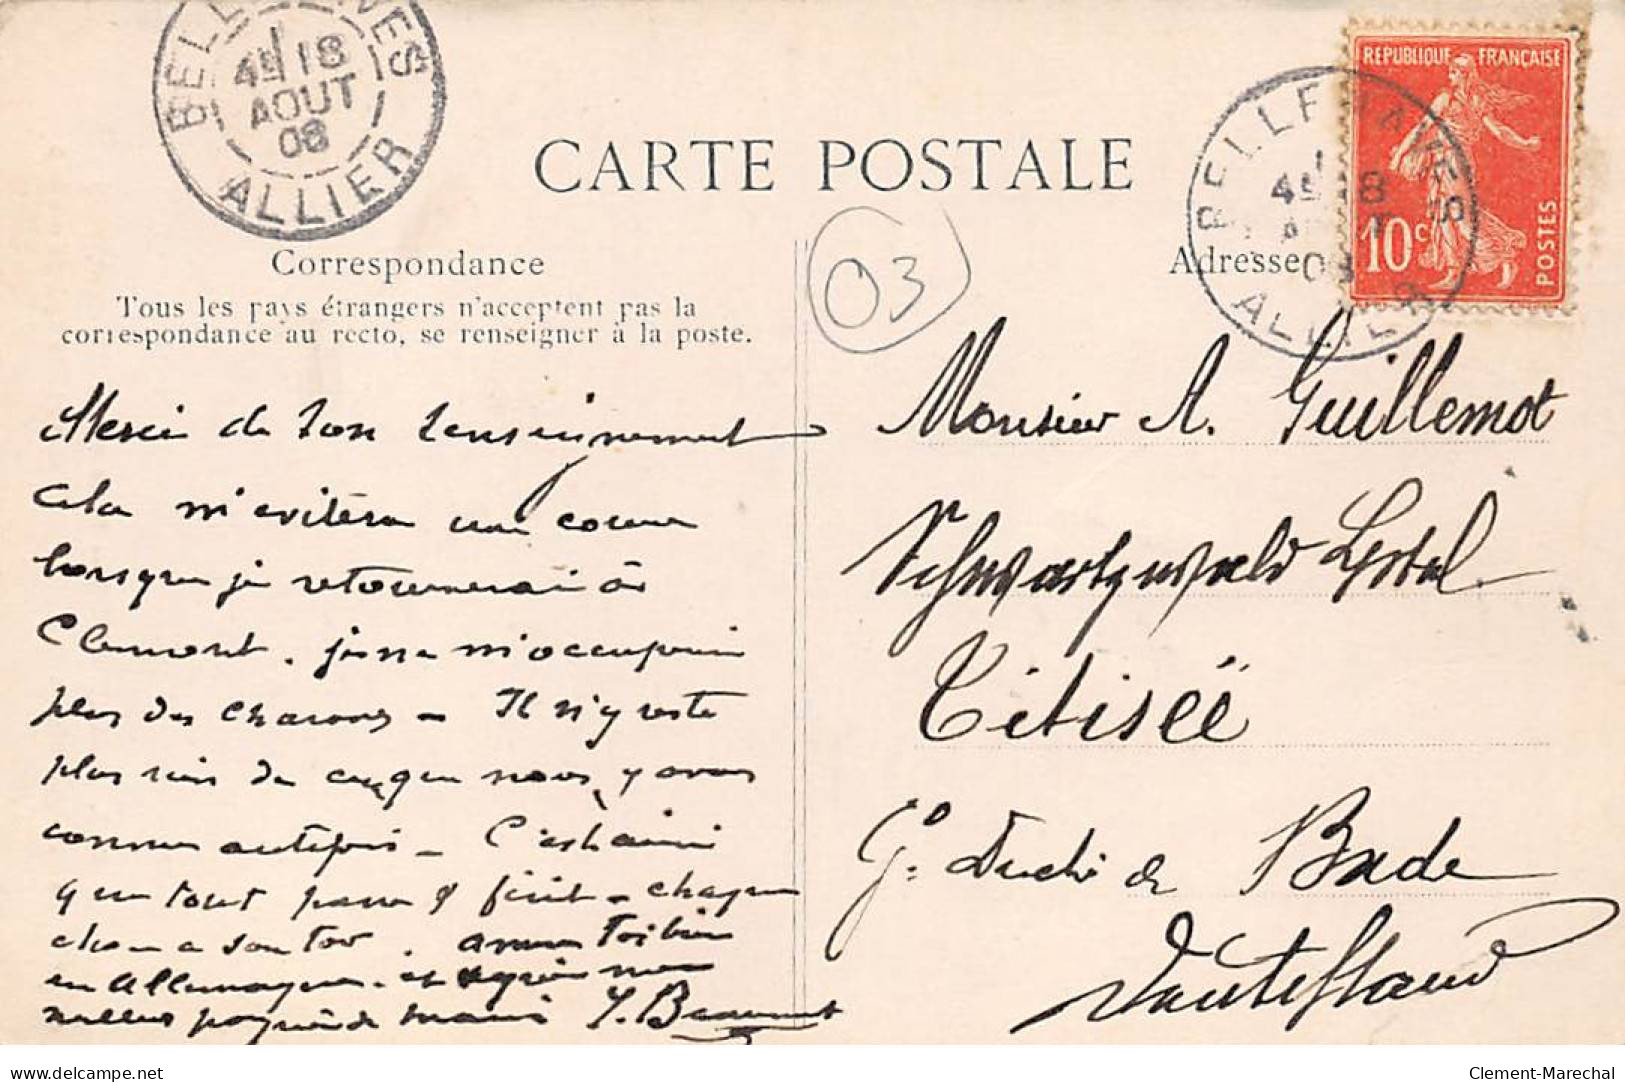 BELLENAVES
4E 18
AOUT
08
ALLIER
CARTE POSTALE
REPUBLIQUE FRANÇAISE
10c
POSTES
BELLENAVES
4E 18
08
ALLIER
Correspondance
Tous les pays étrangers n'acceptent pas la
correspondance au recto, se renseigner à la poste.
03
Adresse
Merci de ton renseignement
cela m'évitera une course
lorsque je retournerai à
Clermont. je ne m'occuperai
plus des
Il n'y reste
plus rien de ce que nous y avons
connu autrefois – C'est ainsi
que tout passe & finit – chaque
chose a son tour. amuse toi bien
en Allemagne. et
meilleures poignées de mains Y. Beaumont
Monsieur A. Guillemot
Schwartzwald Hotel
Titiséë
Gd Duché de Bade
Deutschland
Clement-Marechal